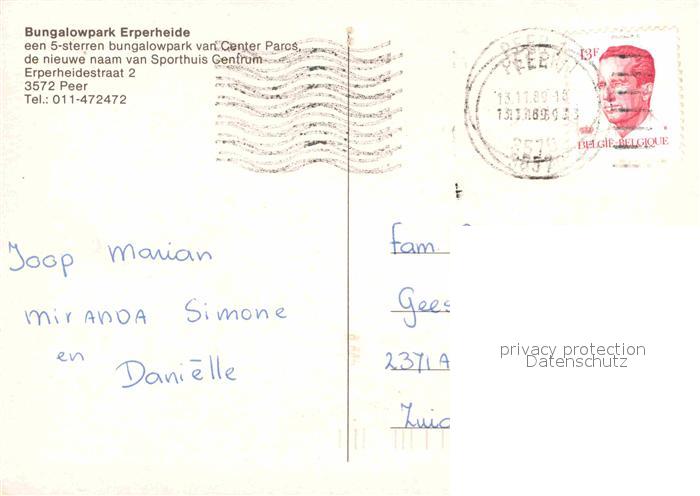 Bungalowpark Erperheide
een 5-sterren bungalowpark van Center Parcs,
de nieuwe naam van Sporthuis Centrum
Erperheidestraat 2
3572 Peer
Tel.: 011-472472
13F
BELGIE-BELGIQUE
Joop Marian
MIRANDA Simone
en
Daniëlle
fam.
Gees
2371 A
Zuid
privacy protection
Datenschutz